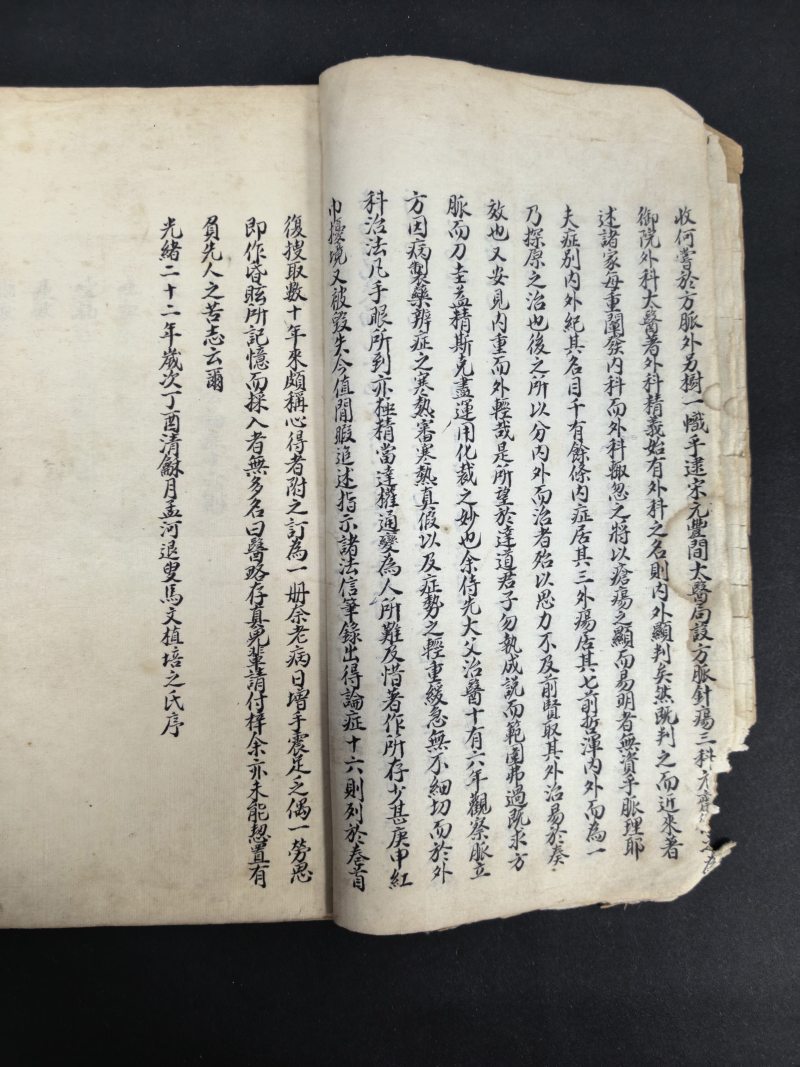 收何嘗於方脈外另樹一幟乎逮宋元豐間太醫局設方脈針瘍三科
御院外科太醫著外科精義始有外科之名則內外顯判矣然既判之而近來著
述諸家每重闡發內科而外科輙忽之將以瘡瘍之顯而易明者無資乎脈理耶
夫症別內外紀其名目千有餘條內症居其三外瘍居其七前哲渾內外而為一
乃探原之治也後之所以分內外而治者殆以思力不及前賢取其外治易於奏
效也又安見內重而外輕哉是所望於達道君子勿執成說而範圍弗過既求方
脈而刀圭益精斯克盡運用化裁之妙也余侍先大父治醫十有六年觀察脈立
方因病製藥辨症之寒熱審寒熱真假以及症勢之輕重緩急無不細切而於外
科治法凡手眼所到亦極精當達權通變為人所難及惜著作所存少甚庚申紅
巾擾境又被毀失今值閒暇追述指示諸法信筆錄出得論症十六則列於卷首
復搜取數十年來頗稱心得者附之訂為一册余老病日增手震足乏偶一勞思
即作昏眩所記憶而採入者無多名曰醫略存真兒輩請付梓余亦未能恝置有
負先人之苦志云爾
光緒二十二年歲次丁酉清龢月孟河退叟馬文植培之氏序